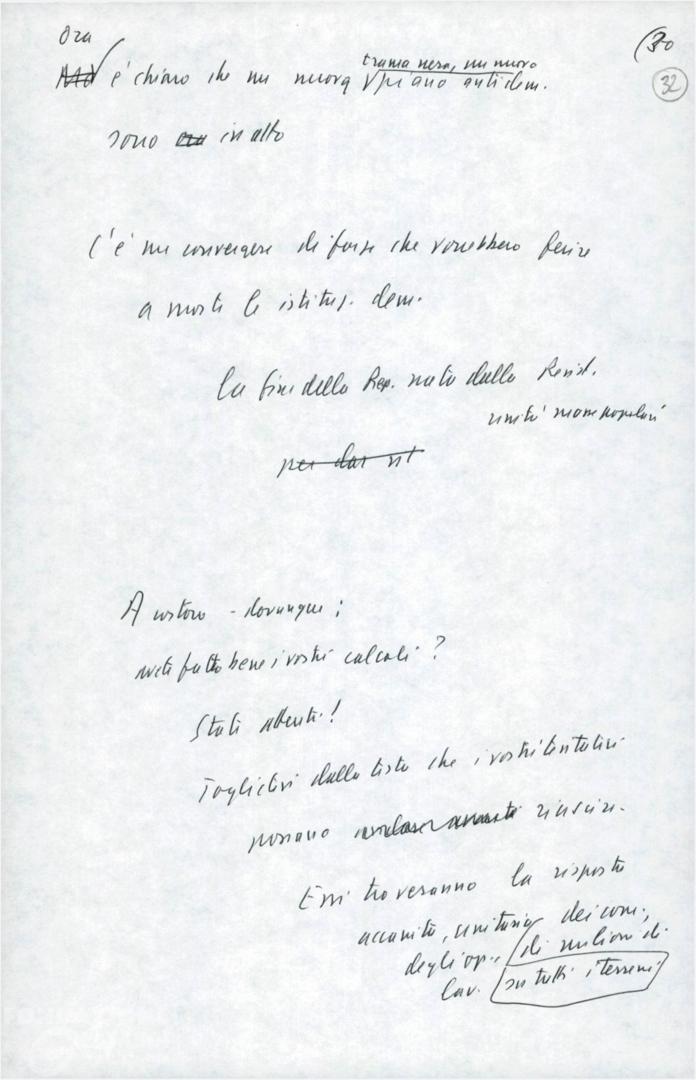 Ora
(30
32
Ma è chiaro che una nuova trama nera, un nuovo piano antidem.
sono ora in atto
C'è un convergere di forze che vorrebbero ferire
a morte le istituz. dem.
la fine della Rep. nata dalla Resist.
unità masse popolari
per dar vit
A costoro - dovunque:
avete fatto bene i vostri calcoli?
State attenti!
Toglietevi dalla testa che i vostri tentativi
possano andare avanti riuscire.
Essi troveranno la risposta
accanita, unitaria dei com.,
degli op., di milioni di
lav. su tutti i terreni